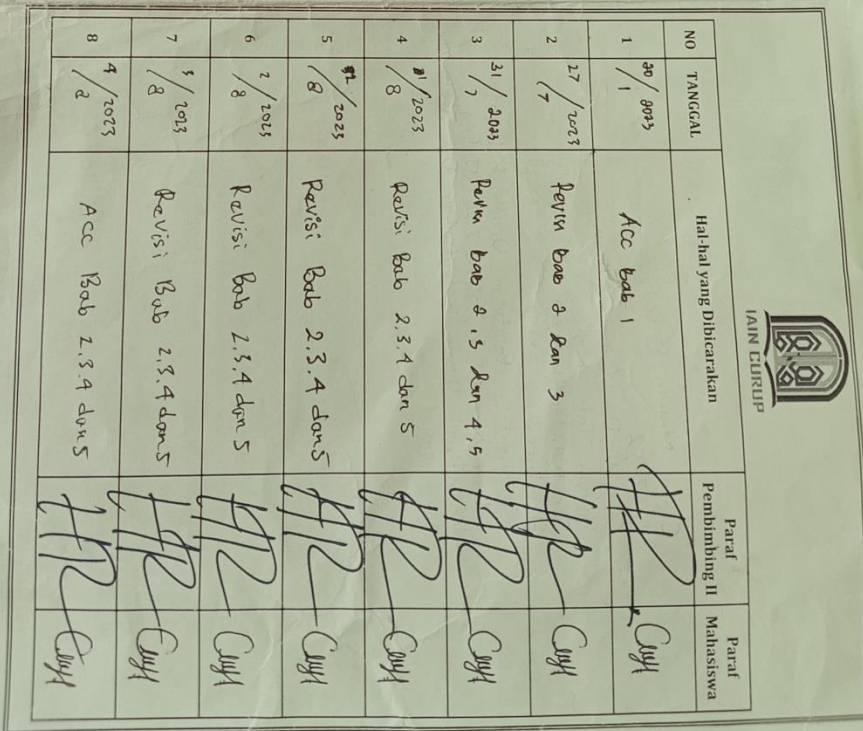 IAIN CURUP
NO TANGGAL Hal-hal yang Dibicarakan Paraf Pembimbing II Paraf Mahasiswa
1 20/1 2023 Acc bab 1
2 27/7 2023 Revisi bab 2 dan 3
3 31/7 2023 Revisi bab 2,3 dan 4,5
4 1/8 2023 Revisi Bab 2.3.4 dan 5
5 2/8 2023 Revisi Bab 2.3.4 dan 5
6 2/8 2023 Revisi Bab 2.3.4 dan 5
7 3/8 2023 Revisi Bab 2.3.4 dan 5
8 4/8 2023 Acc Bab 2.3.4 dan 5